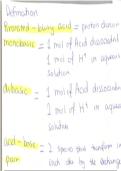 Definition
Bronsted-lowry acid = proton donor
monobasic = 1 mol of Acid dissociat
1 mol of H⁺ in aqueous
solution
dibasic = 1 mol of Acid dissociat
2 mol of H⁺ in aqueous
solution
acid-base = 2 species that transform in
pair each other by the exchange